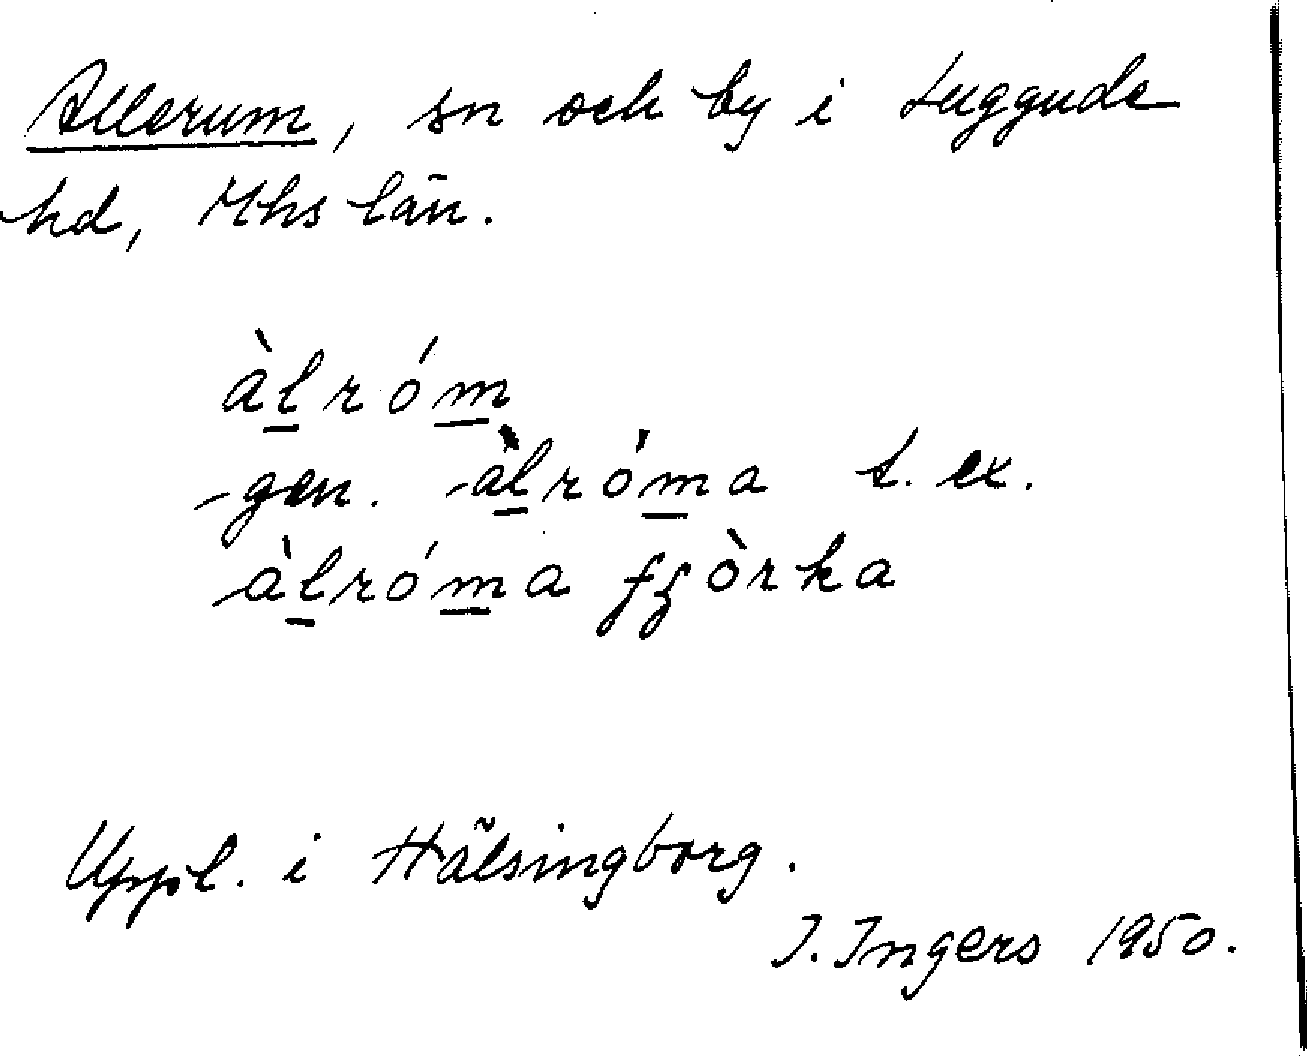 Allerum, sn och by i Luggude
hd, Mhs län.
àl̲róm̲
gen. àl̲róm̲a t. ex.
àl̲róm̲a fʒòrka
Uppl. i Hälsingborg.
I. Ingers 1950.